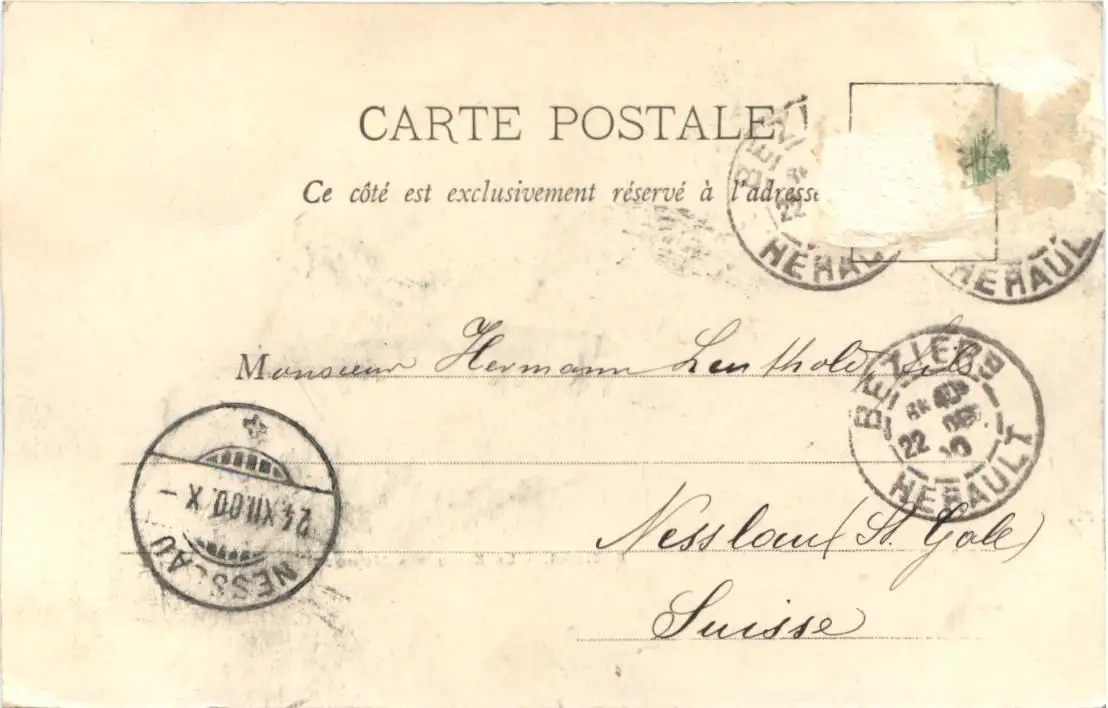 CARTE POSTALE
Ce côté est exclusivement réservé à l'adresse
BEZI
22
HERAUL
HERAUL
Monsieur Hermann Leuthold fils
BEZIERS
22 DEC
HERAULT
24.XII.00.X-
NESSLAU
Nesslau (St. Gale)
Suisse